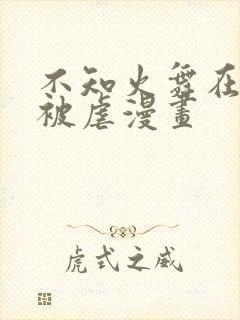 不知火舞在
被虐漫畫
虎式之威